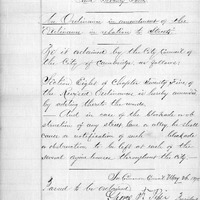 An Ordinance in amendment of the
Ordinance in relation to Streets
Be it ordained by the City Council of
the City of Cambridge, as follows:
Section Eight of Chapter Twenty Five of
the Revised Ordinances is hereby amended
by adding thereto the words
And in case of the blockade or ob-
struction of any street lane or alley he shall
cause a notification of such blockade
or obstruction to be left at each of the
engine houses throughout the City
In Council May 26
Passed to be ordained
President